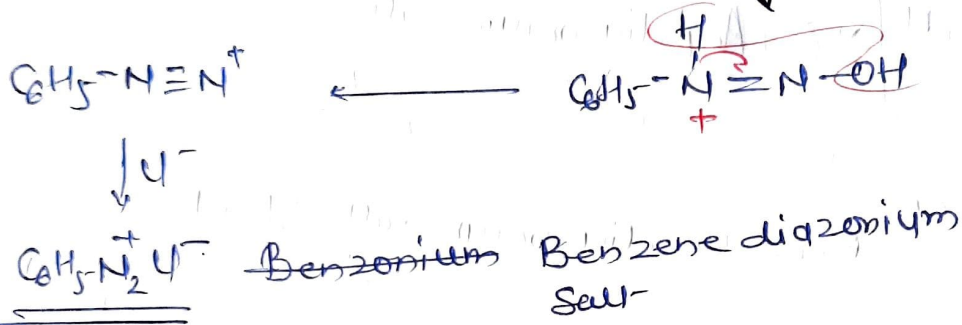 H
C6H5-N≡N+ ← C6H5-N=N-OH
+
↓ Cl-
C6H5-N2+ Cl- Benzonium Benzene diazonium
Salt